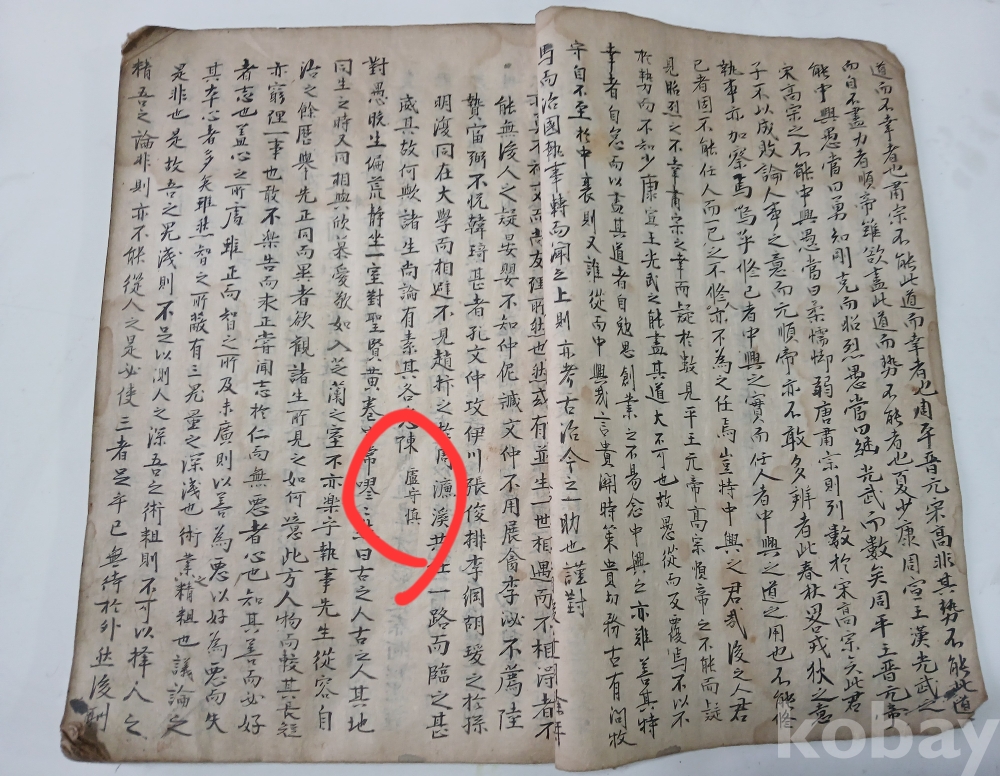 道而不幸者也肅宗不能此道而幸者也周平晋元宋高非其勢不能此道
而自不盡力者順帝雖欲盡此道而勢不能者也夏少康周宣王漢光武之
能中興愚當曰勇知剛克而昭烈愚當曰継光武而數矣周平王晋元帝
宋高宗之不能中興愚當曰柔懦㤼弱唐肅宗則引數於宋高宗六此君
子不以成敗論人事之意而元順帝亦不敢多辨者此春秋畧戎狄之意
執事亦加察焉嗚乎修己者中興之實而任人者中興之道之用也不能修
己者因不能任人而己之不修亦不為之任焉豈特中興之君㢤後之人君
見昭烈之不幸肅宗之幸而疑於數見平王元帝高宗順帝之不能而疑
於勢而不知少康宣王光武之能盡其道大不可也故愚從而反覆焉不以不
幸者自怠而以盡其道者自勉思創業之不易念中興之亦難善其特
守自不至於中衰則又誰從而中興㢤言貴開時策貴切務古有問牧
馬而治國執事轉而聞之上則亦考古治今之一助也謹對
能無後人之疑晏嬰不知仲伲誠文仲不用展禽李泌不薦陸
贄富弼不悦韓琦甚者孔文仲攻伊川張俊排李綱胡瑗之於孫
明復同在大學而相避不見趙抃之於周濂溪共在一路而臨之甚
威其故何歟諸生尚論有素其各悉陳 盧守慎
對愚晈生偏荒静坐一室對聖賢黄卷常嘐嘐曰古之人古之人其地
同生之時又同相與欣慕愛敬如入芝蘭之室不亦楽乎執事先生從容自
治之餘歴舉先正同而異者欲觀諸生所見之如何噫此方人物而較其長短
亦窮理一事也敢不楽告而求正甞聞志於仁而無悪者心也知其善而必好
者志也盖心之所存雖正而智之所及未廣則以善為悪以好為悪而失
其本心者多矣雖然智之所蔽有三見量之深淺也術業之精粗也議論之
是非也是故吾之見淺則不足以測人之深吾之術粗則不可以擇人之
精吾之論非則亦不能從人之是必使三者足乎已無待於外然後列